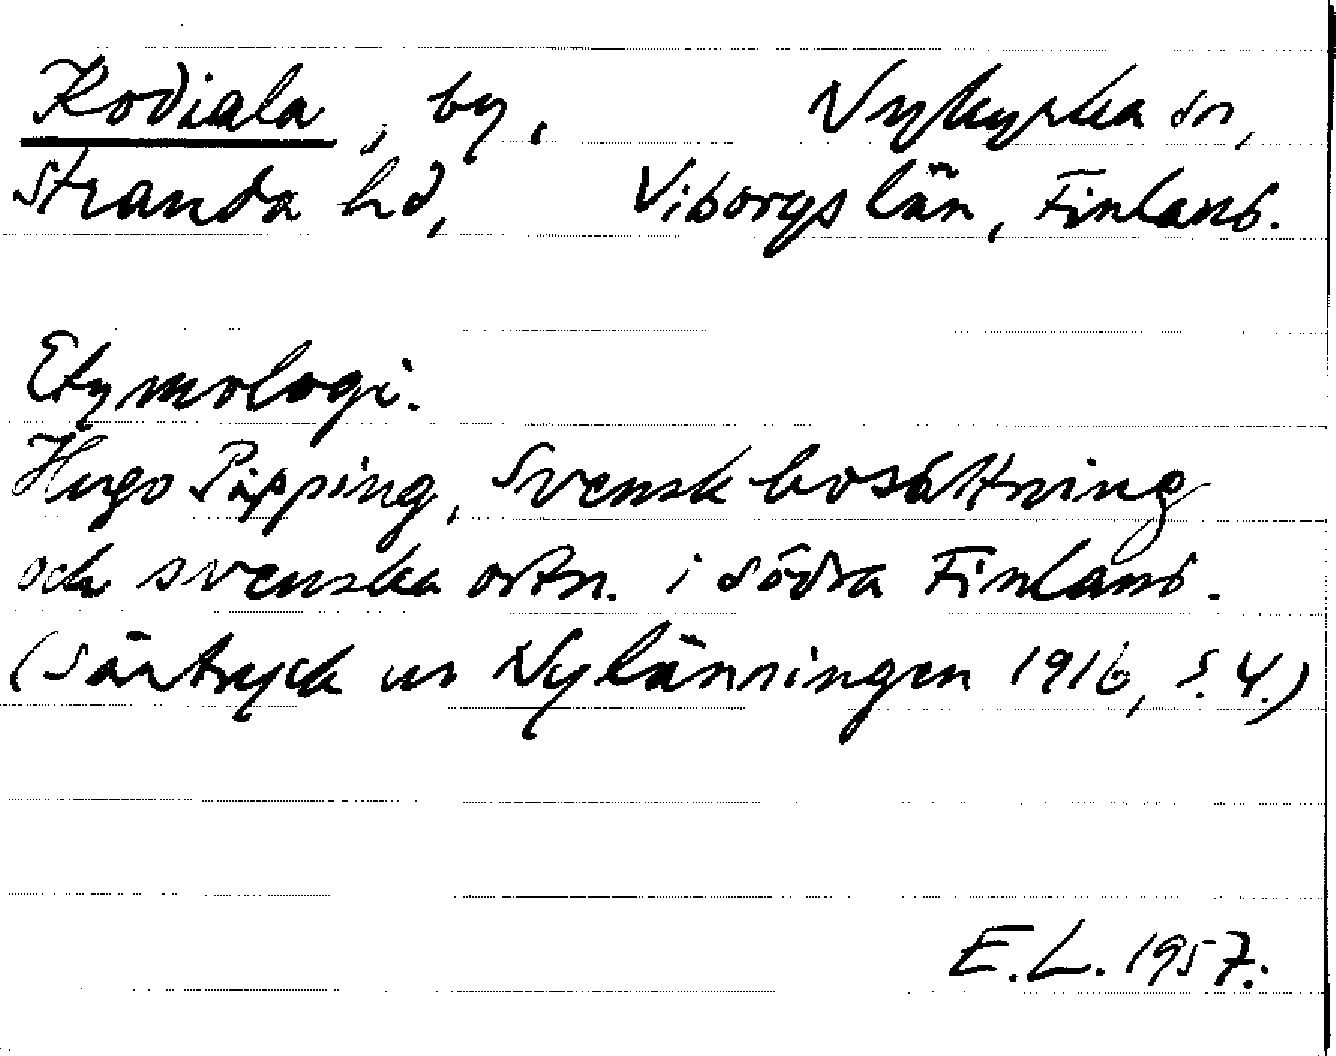 Kodiala, by. Nykyrka sn,
Stranda hd, Viborgs län, Finland.
Etymologi.
Hugo Pipping, Svensk bosättning
och svenska ortn. i södra Finland.
(Särtryck ur Nylänningen 1916, s. 4.)
E.L. 1957.